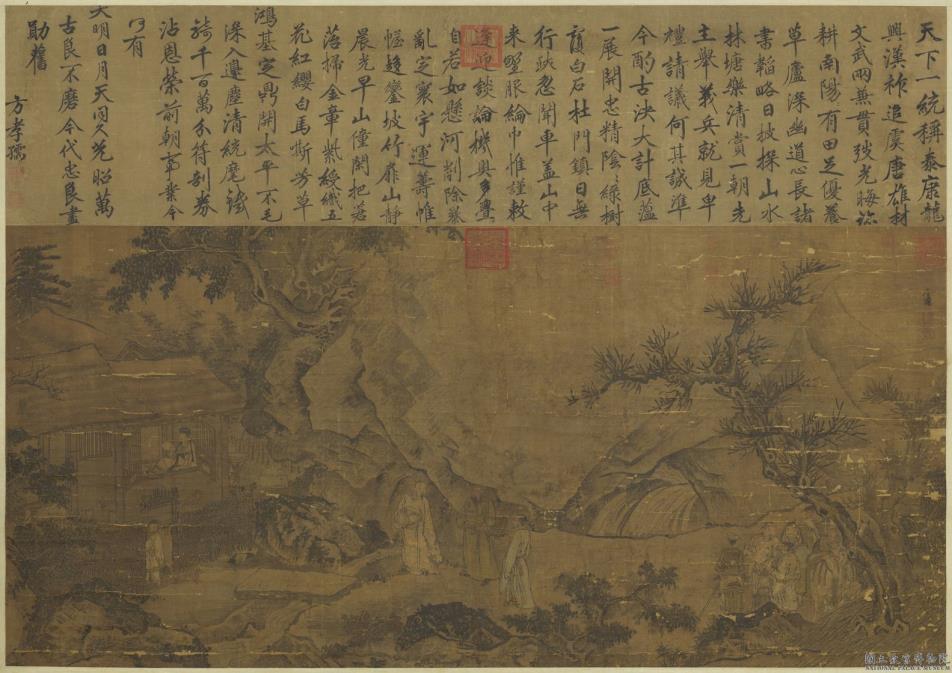 天下一統稱泰康龍
興漢祚追虞唐雄材
文武兩兼貫弢光晦跡
耕南陽有田足優養
草廬深幽道心長諸
書韜略日披探山水
林塘樂清賞一朝先
主舉義兵就見卑
禮請議何其誠準
今酌古決大計底蘊
一展開忠精陰陰綠樹
白石杜門鎮日無
行跡忽聞車蓋山中
來野服綸巾惟謹敕
逢迎談論機輿多亹
自若如懸河剖除
亂定寰宇運籌惟
幄趨鑾坡竹扉山靜
晨光早山僮閑把蒼
落掃金章紫綬五
花紅纓白馬嘶芳草
鴻基定鼎開太平不毛
深入邊塵清統麾鐵
騎千百萬分符剖券
沾恩榮前朝事業今
何有
大明日月天同久光昭萬
古良不磨今代忠良盡
勛舊
方孝孺
國立故宮博物院
NATIONAL PALACE MUSEUM